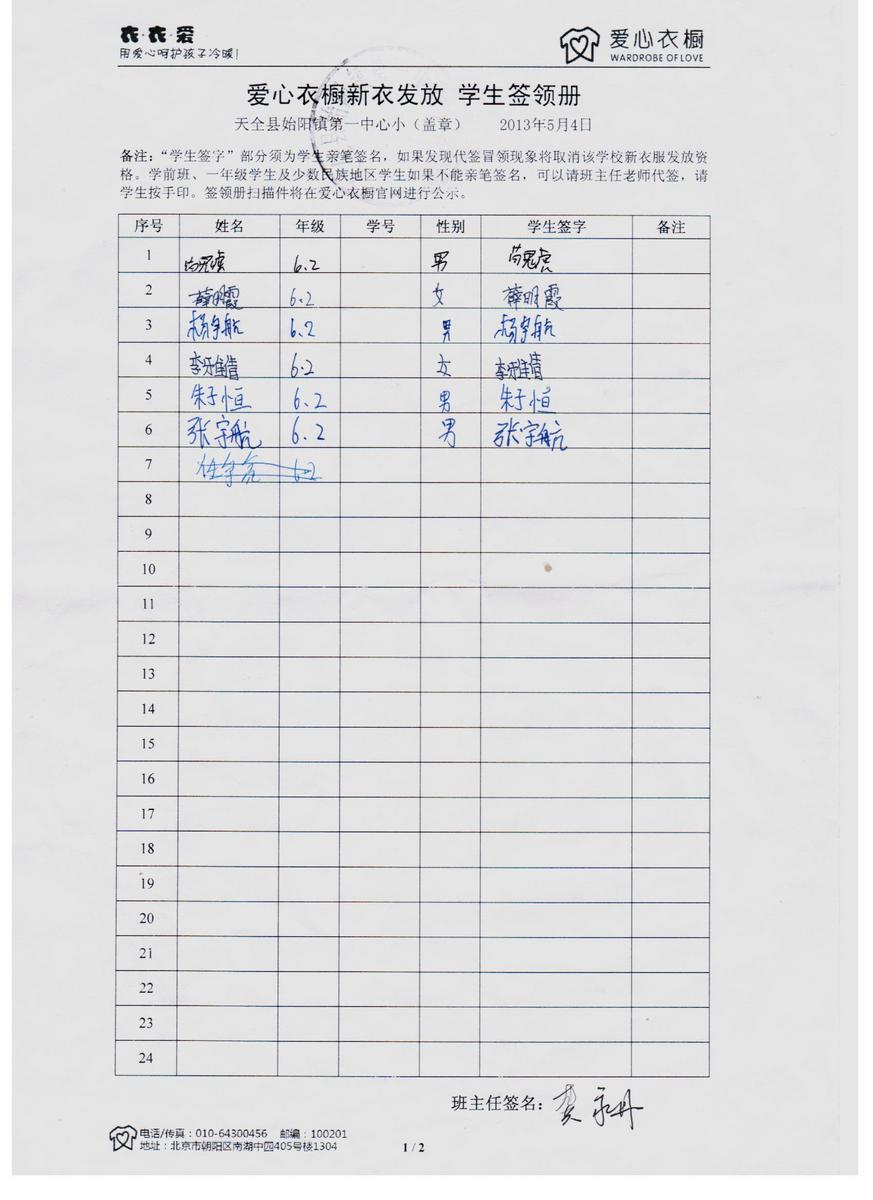 衣·衣·爱
用爱心呵护孩子冷暖!
爱心衣橱
WARDROBE OF LOVE
爱心衣橱新衣发放 学生签领册
天全县始阳镇第一中心小(盖章) 2013年5月4日
备注:“学生签字”部分须为学生亲笔签名,如果发现代签冒领现象将取消该学校新衣服发放资
格。学前班、一年级学生及少数民族地区学生如果不能亲笔签名,可以请班主任老师代签,请
学生按手印。签领册扫描件将在爱心衣橱官网进行公示。
序号 姓名 年级 学号 性别 学生签字 备注
1 6.2 男
2 薛明霞 6.2 女 薛明霞
3 杨宇航 6.2 男 杨宇航
4 6.2 女
5 朱于恒 6.2 男 朱于恒
6 张宇航 6.2 男 张宇航
7 6.2
8
9
10
11
12
13
14
15
16
17
18
19
20
21
22
23
24
班主任签名:
电话/传真:010-64300456 邮编:100201
地址:北京市朝阳区南湖中园405号楼1304
1 / 2